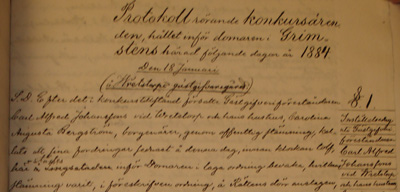 Protokoll rörande konkursären-
den, hållet inför domaren i Grim-
stens härad följande dagar år 1884.
Den 18 Januari
(i Wretstorps gästgifvaregård)
S. D. Efter det i konkurstillstånd försatte Gästgifveriföreståndaren
Carl Alfred Johansson vid Wretstorp och hans hustru, Carolina
Augusta Bergström, borgenärer, genom offentlig stämning, kal-
lats at sina fordringar sednast å denna dag, innan klockan tolf,
här å inför Domaren i laga ordning bevaka, hvilken
stämning varit, i föreskrifven ordning, å Rättens dörr anslagen,
§ 1
Gästgifveri-
föreståndaren
Carl Alfred
Johanssons
vid Wretstorp
och hans hustru